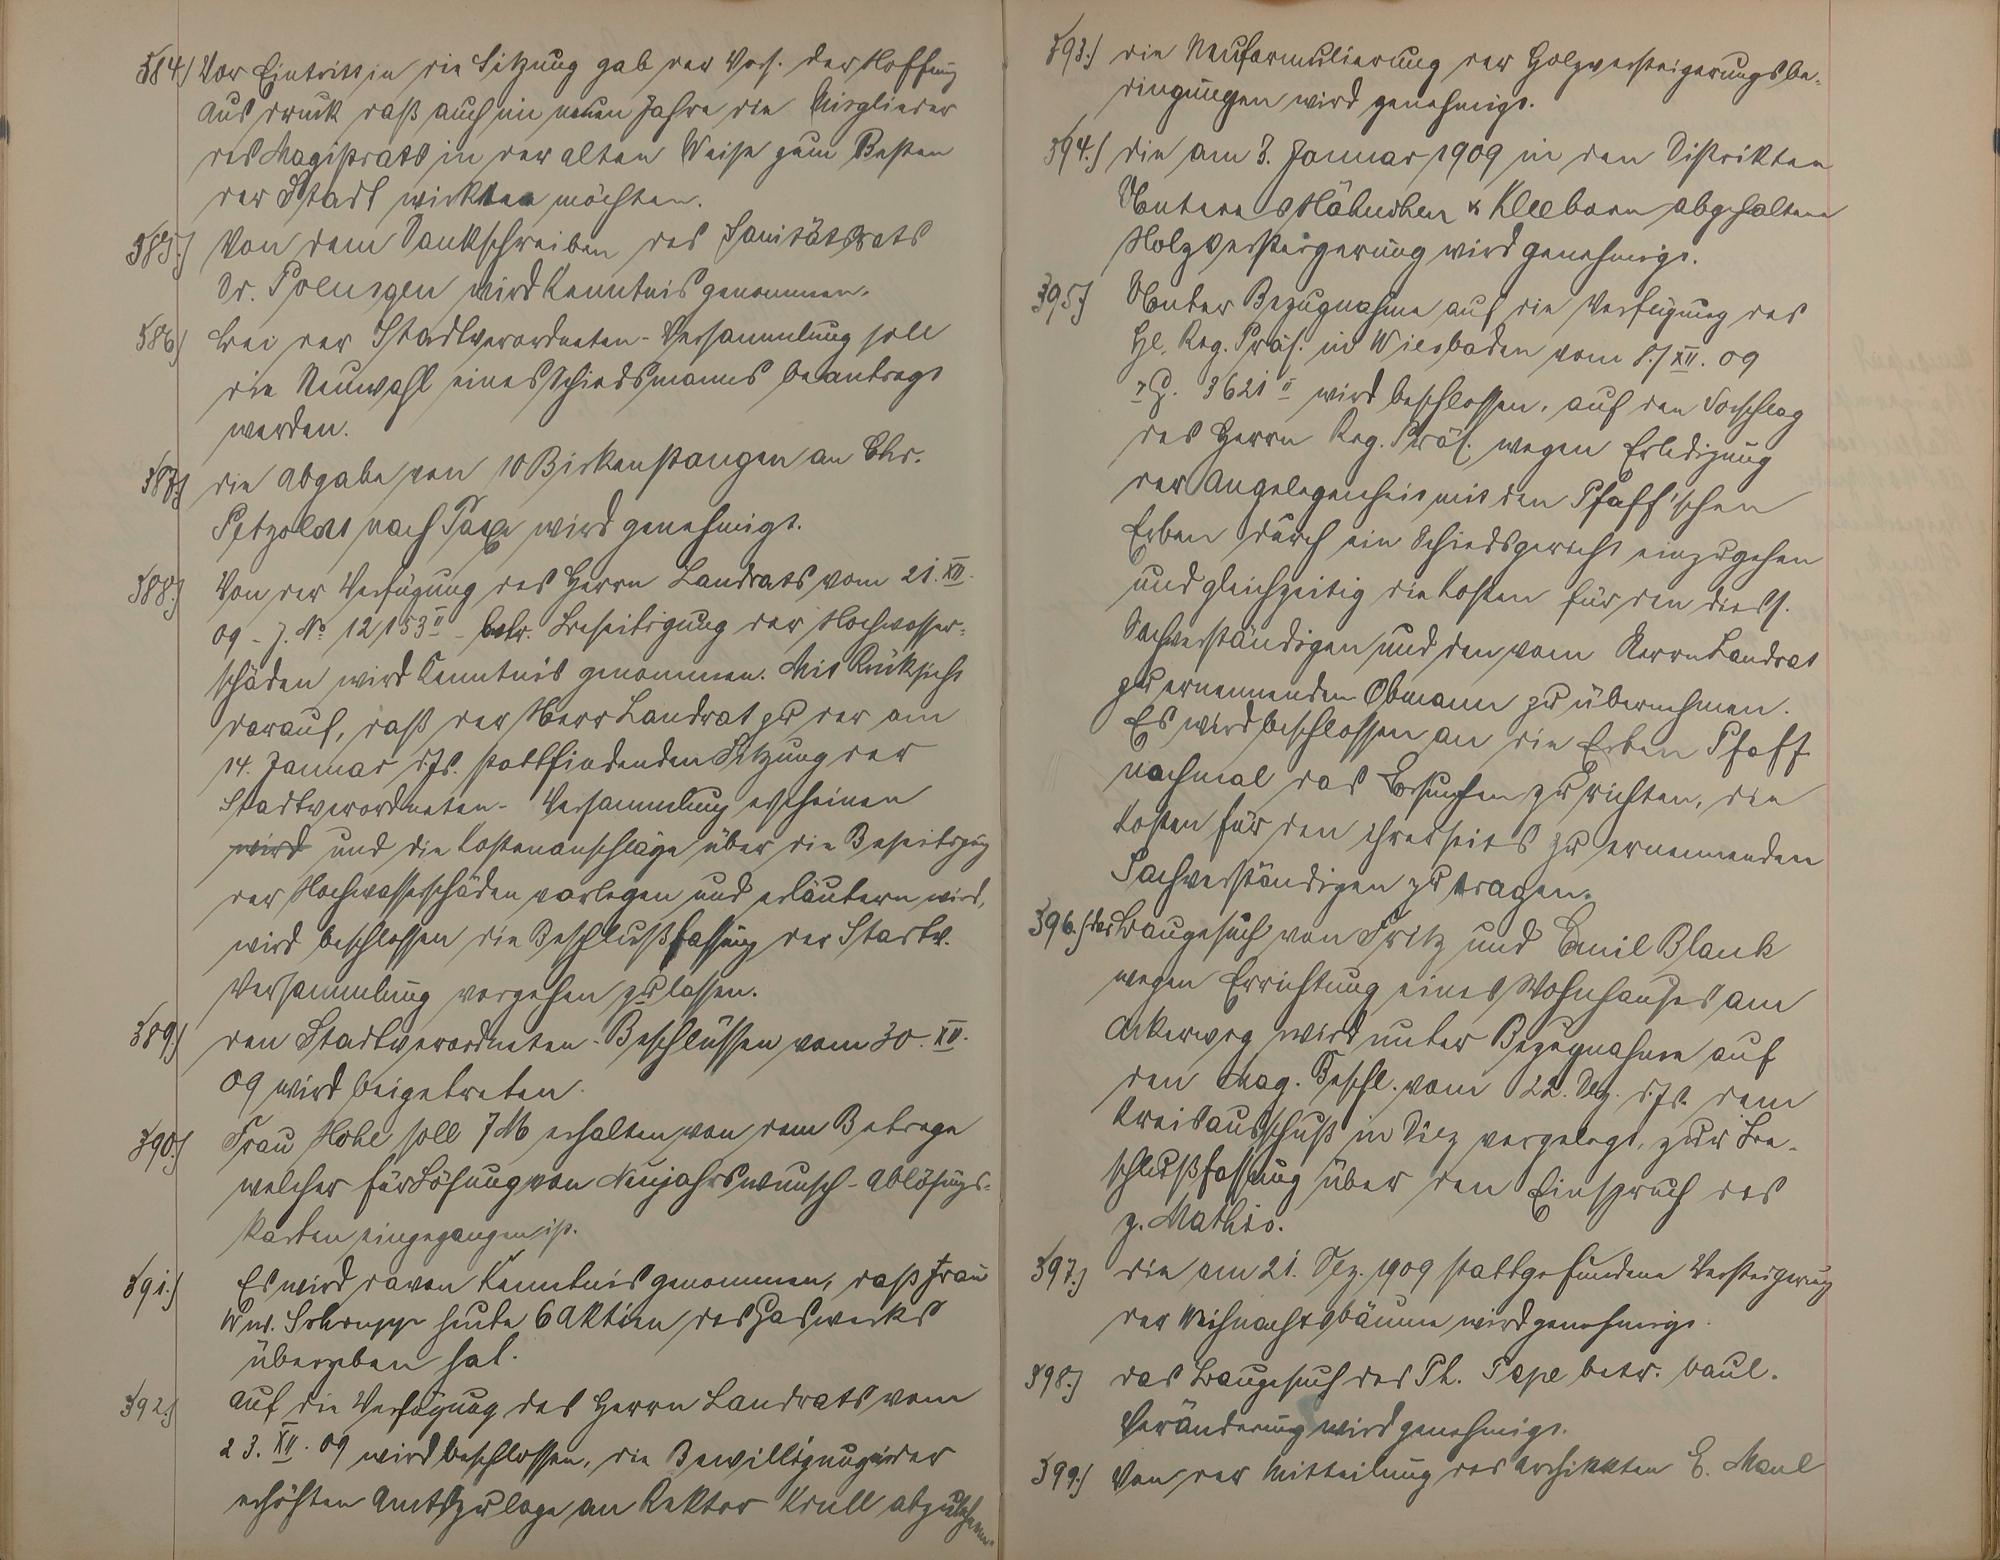 384.) Vor Eintritt in die Sitzung gab der Vors. der Hoffnung
Ausdruck daß auch im neuen Jahre die Mitglieder
des Magistrats in der alten Weise zum Besten
der Stadt wirken möchten.
385.) Von dem Dankschreiben des Sanitätsrats
Dr. wird Kenntnis genommen.
386.) Bei der Stadtverordneten-Versammlung soll
die Neuwahl eines Schiedsmanns beantragt
werden.
387.) die Abgabe von 10 Birkenstangen an Chr.
Petzoldt nach Taxe wird genehmigt.
388.) Von der Verfügung des Herrn Landrats vom 21. XII.
09 - J. No 12153 II - betr. Beseitigung der Hochwasser-
schäden wird Kenntnis genommen. Mit Rücksicht
darauf, daß der Herr Landrat zu der am
14. Januar d. Js. stattfindenden Sitzung der
Stadtverordneten-Versammlung erscheinen
wird und die Kostenanschläge über die Beseitigung
der Hochwasserschäden vorlegen und erläutern wird,
wird beschlossen die Beschlußfassung der Stadtv.
Versammlung vorgehen zu lassen.
389.) den Stadtverordneten-Beschlüssen vom 30. XII.
09 wird beigetreten.
390.) Frau Hohl soll 7 M erhalten von dem Betrage
welcher für Lösung von Neujahrswunsch-Ablösungs-
karten eingegangen ist.
391.) Es wird davon Kenntnis genommen, daß Frau
Ww. Schrupp heute 6 Aktien des Gaswerks
übergeben hat.
392.) Auf die Verfügung des Herrn Landrats vom
23. XII. 09 wird beschlossen, die Bewilligung der
erhöhten Amtszulage an Rektor Krull abzulehnen.
393.) die Neuformulierung der Holzversteigerungsbe-
dingungen wird genehmigt.
394.) die am 3. Januar 1909 in den Distrikten
Hintere Hähnchen & Kleeborn abgehaltene
Holzversteigerung wird genehmigt.
395.) Unter Bezugnahme auf die Verfügung des
H. Reg. Präs. in Wiesbaden vom 8./XII. 09
3621 II wird beschlossen, auf den Vorschlag
des Herrn Reg. Präs. wegen Erledigung
der Angelegenheit mit den Pfaff'schen
Erben durch ein Schiedsgericht einzugehen
und gleichzeitig die Kosten für den diess.
Sachverständigen und den vom Herrn Landrat
zu ernennenden Obmann zu übernehmen.
Es wird beschlossen an die Erben Pfaff
nochmal das Ersuchen zu richten, die
Kosten für den ihrerseits zu ernennenden
Sachverständigen zu tragen.
396.) das Baugesuch von Fritz und Emil Blank
wegen Errichtung eines Wohnhauses am
Ackerweg wird unter Bezugnahme auf
den Mag. Beschl. vom 22. Dez. d. Js. dem
Kreisausschuß in Diez vorgelegt, zur Be-
schlußfassung über den Einspruch des
g. Mathis.
397.) die am 21. Dez. 1909 stattgefundene Versteigerung
der Weihnachtsbäume wird genehmigt.
398.) das Baugesuch des Ph. Pape betr. baul.
Veränderung wird genehmigt.
399.) Von der Mitteilung des Architekten E. Maul